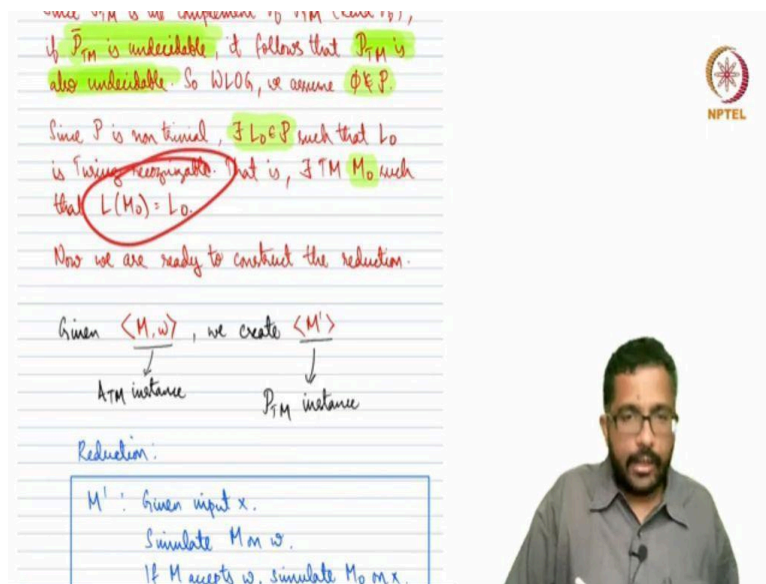 if P̄TM is undecidable, it follows that PTM is
also undecidable. So WLOG, we assume ϕ ∉ P.
Since P is non trivial, ∃ L0 ∈ P such that L0
is Turing recognizable. That is, ∃ TM M0 such
that L(M0) = L0.
Now we are ready to construct the reduction.
Given <M, w>, we create <M'>
ATM instance
PTM instance
Reduction:
M' : Given input x.
Simulate M on w.
If M accepts w, simulate M0 on x.
NPTEL